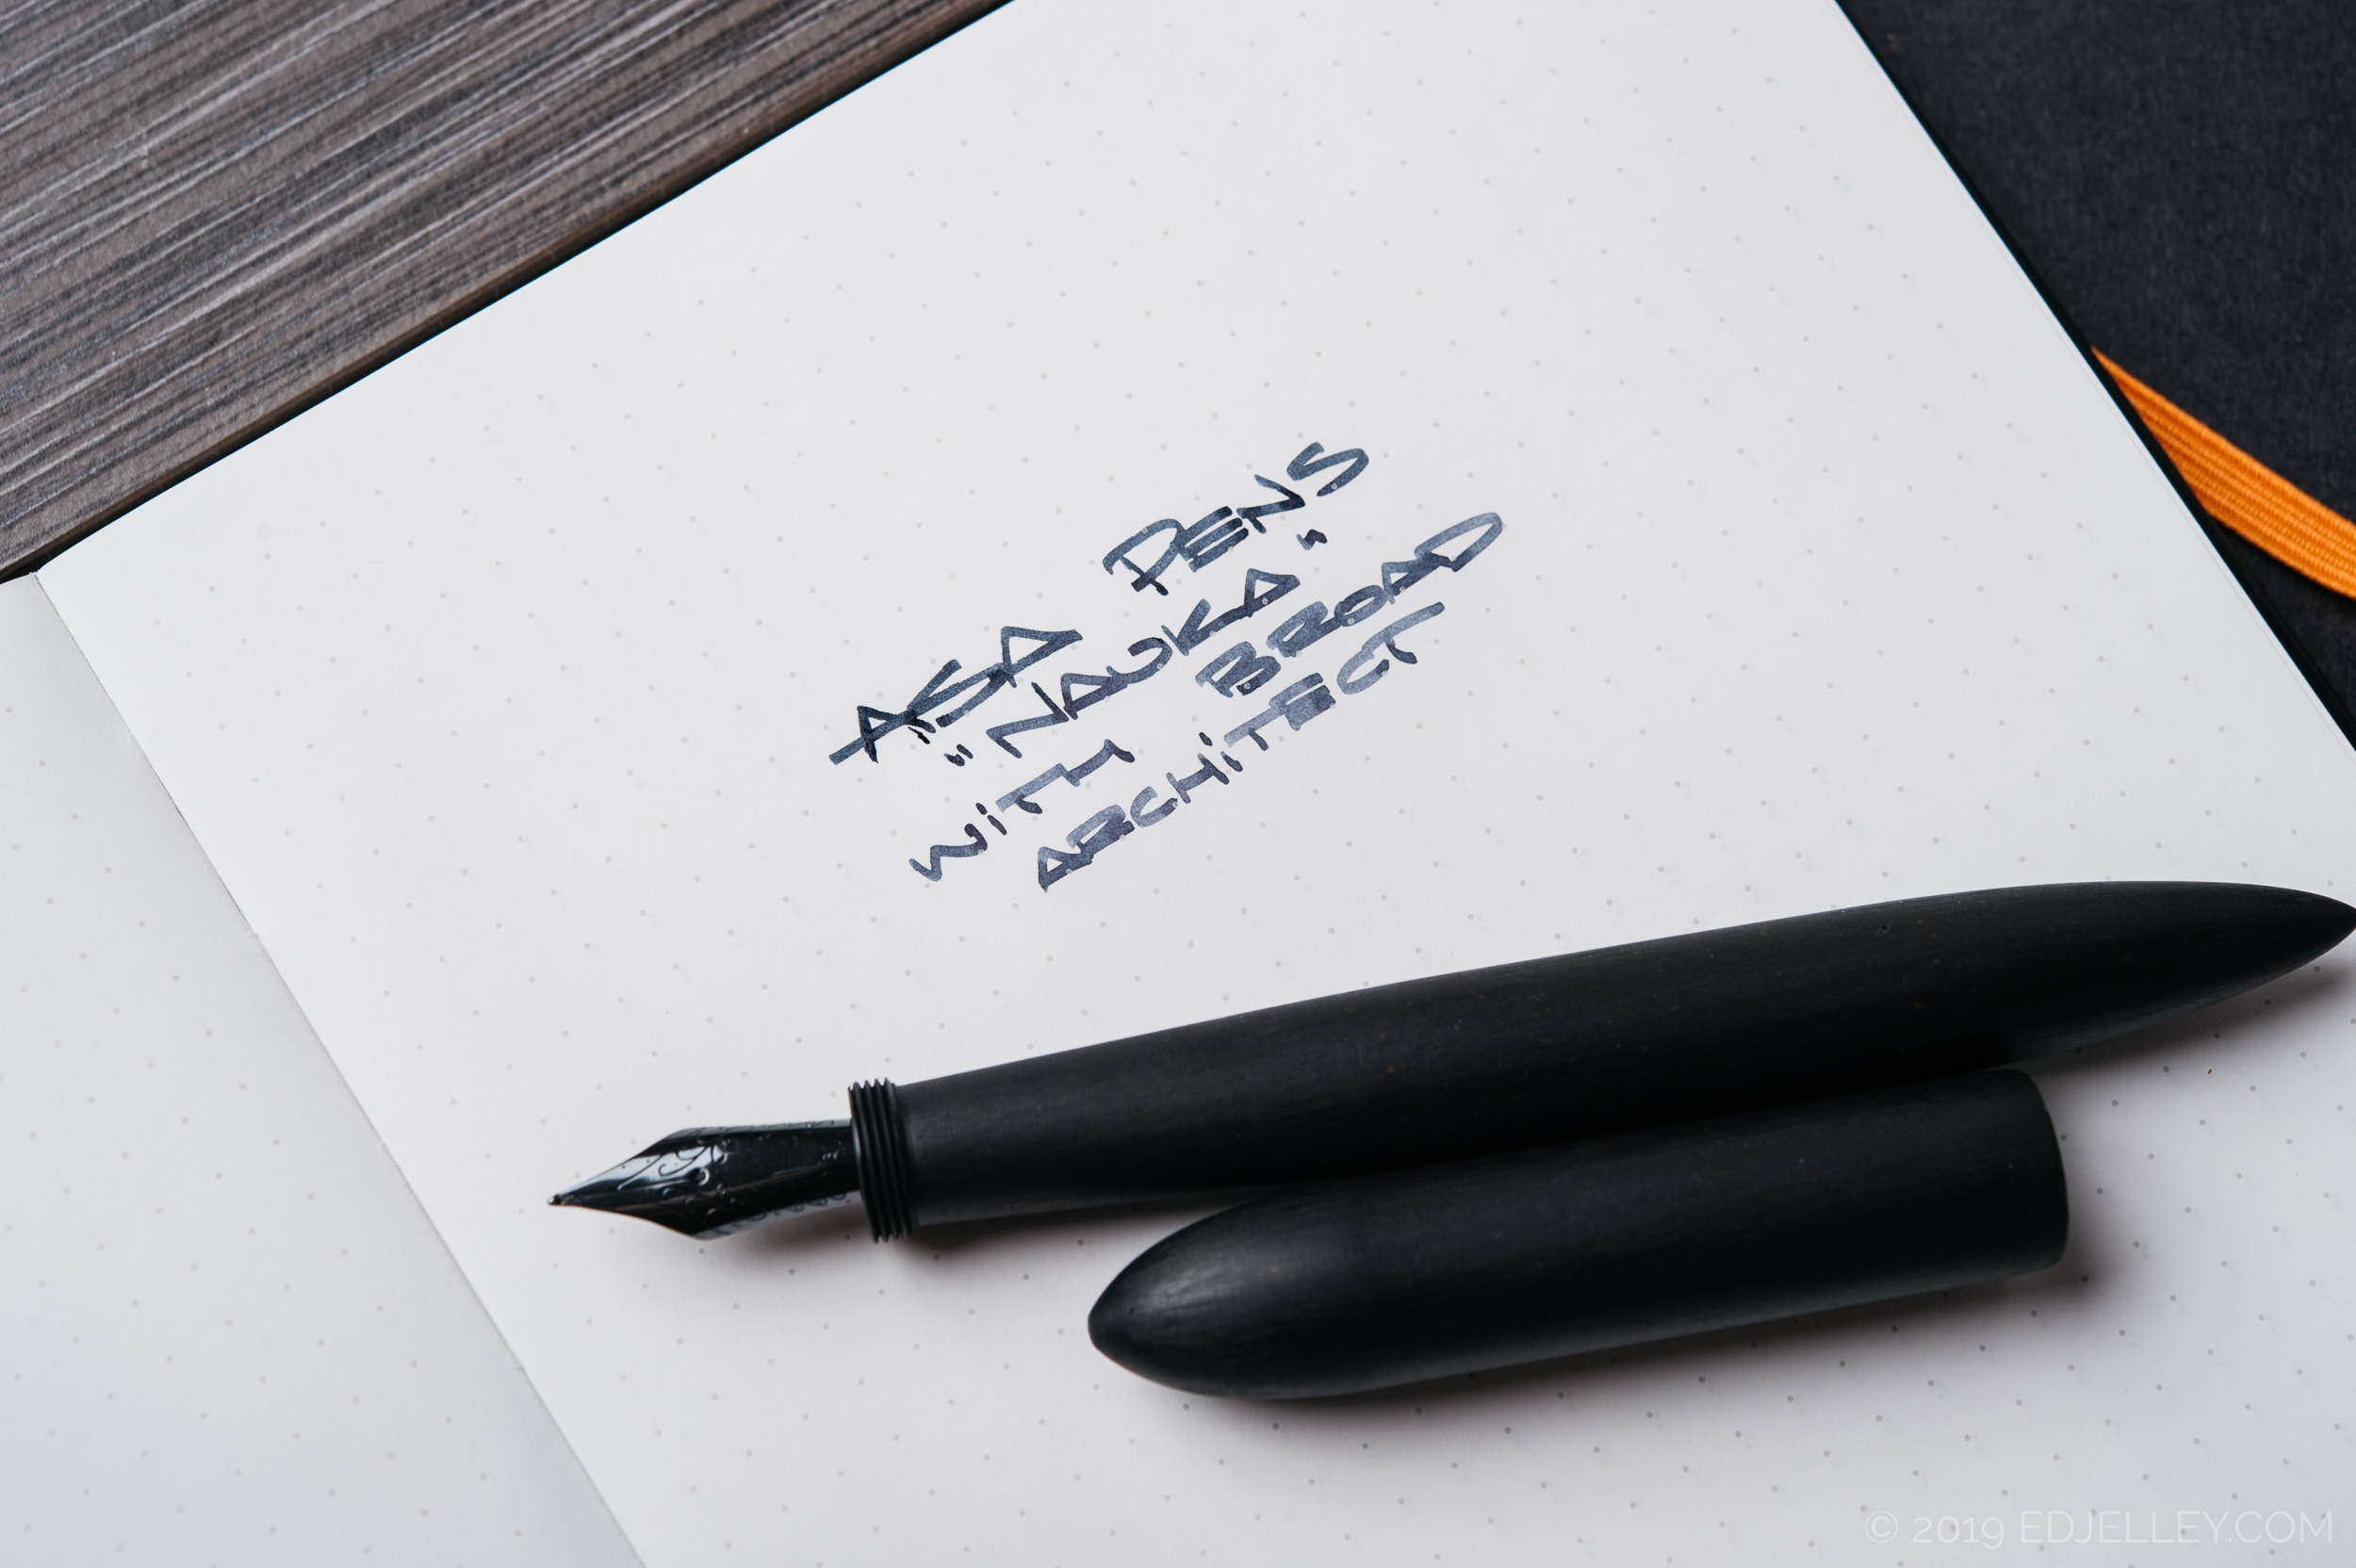 ASA PENS
"NAUKA"
WITH BROAD
ARCHITECT
© 2019 EDJELLEY.COM